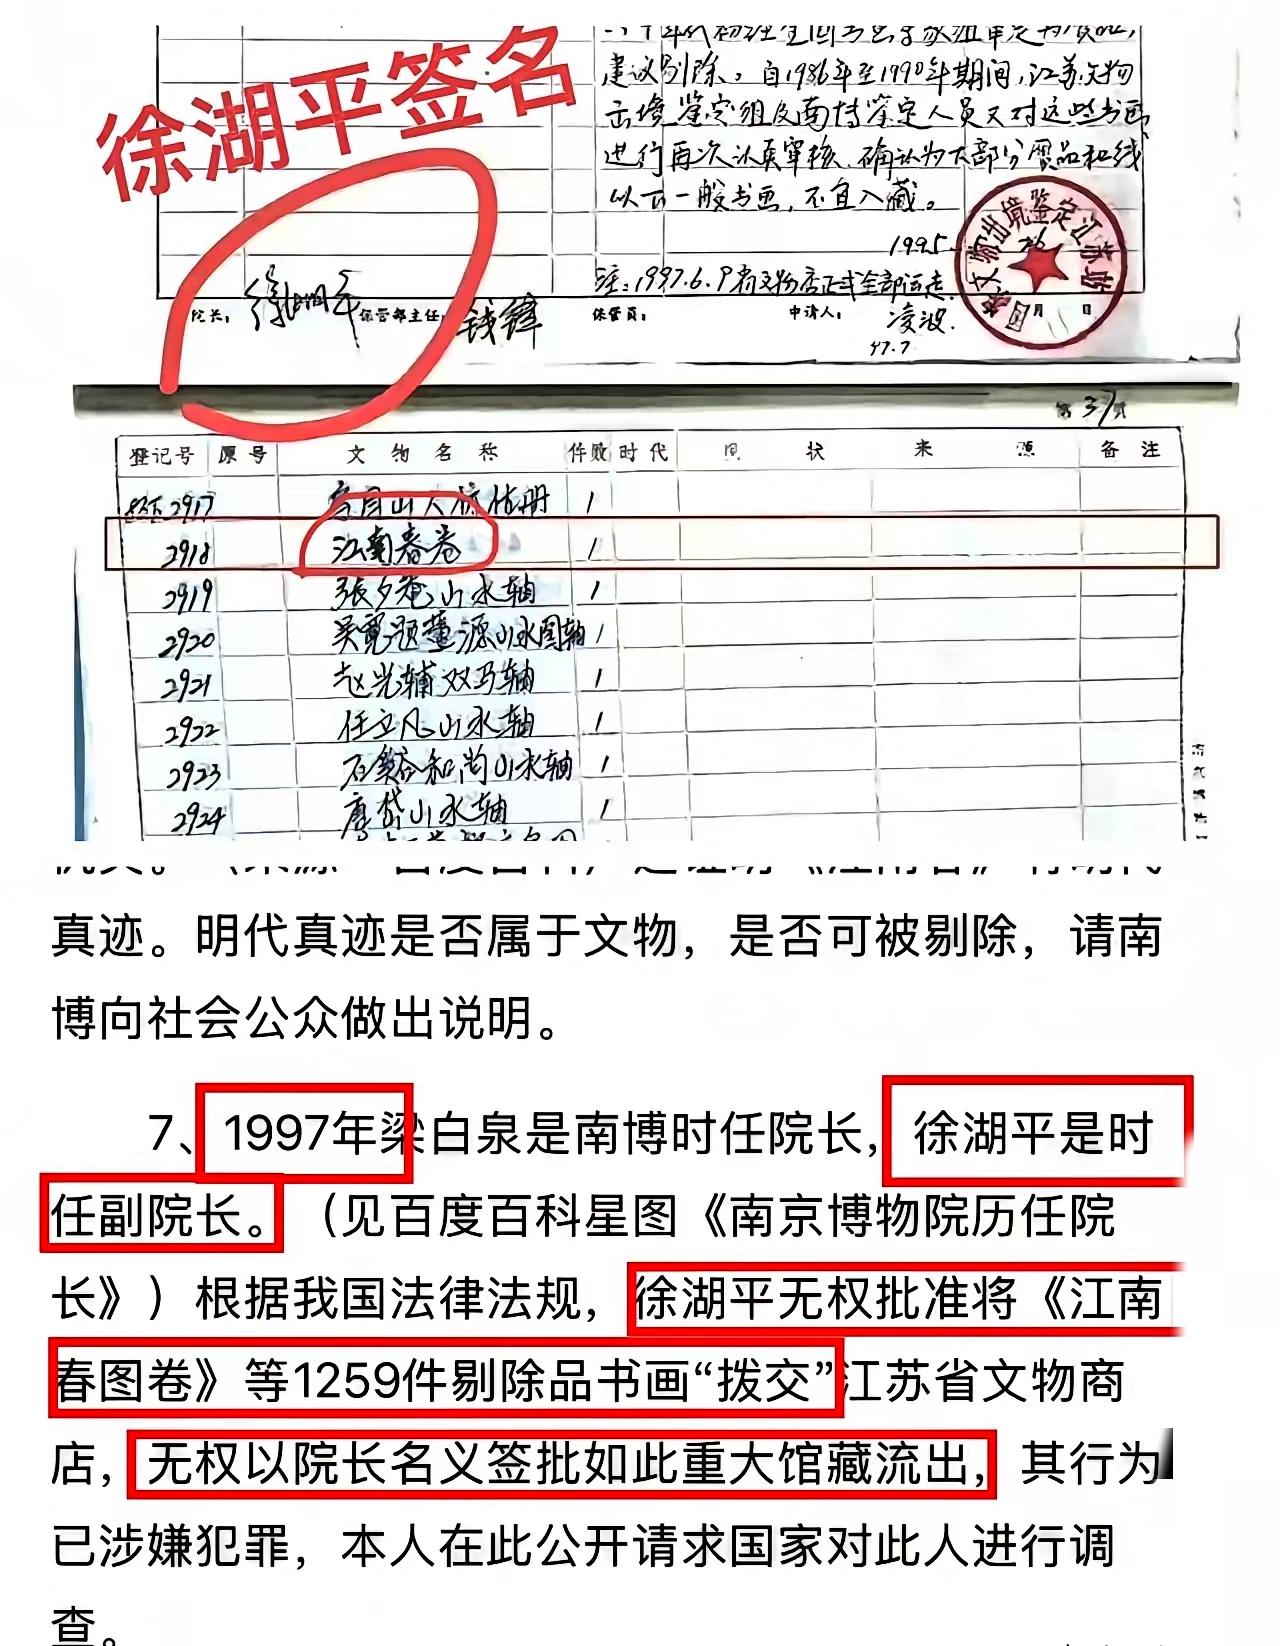 徐湖平签名
建议剔除。自1986年至1990年期间,江苏文物
出境鉴定组及南博鉴定人员又对这些书画
进行再次认真审核,确认为大部分赝品和线
以下一般书画,不宜入藏。
1995.
注:1997.6.9
院长:
徐湖平
保管部主任:
钱锋
保管员:
申请人:
凌波.
97.7
月 日
第37页
登记号 原号 文物名称 件数 时代 来源 备注
2917 1
2918 江南春卷 1
2919 張夕菴山水轴 1
2920 吴寛题董源山水图轴 1
2921 赵光辅双马轴 1
2922 任立凡山水轴 1
2923 石谿和尚山水轴 1
2924 唐岱山水轴 1
真迹。明代真迹是否属于文物,是否可被剔除,请南
博向社会公众做出说明。
7、1997年梁白泉是南博时任院长,徐湖平是时
任副院长。(见百度百科星图《南京博物院历任院
长》)根据我国法律法规,徐湖平无权批准将《江南
春图卷》等1259件剔除品书画“拨交”江苏省文物商
店,无权以院长名义签批如此重大馆藏流出,其行为
已涉嫌犯罪,本人在此公开请求国家对此人进行调
查。